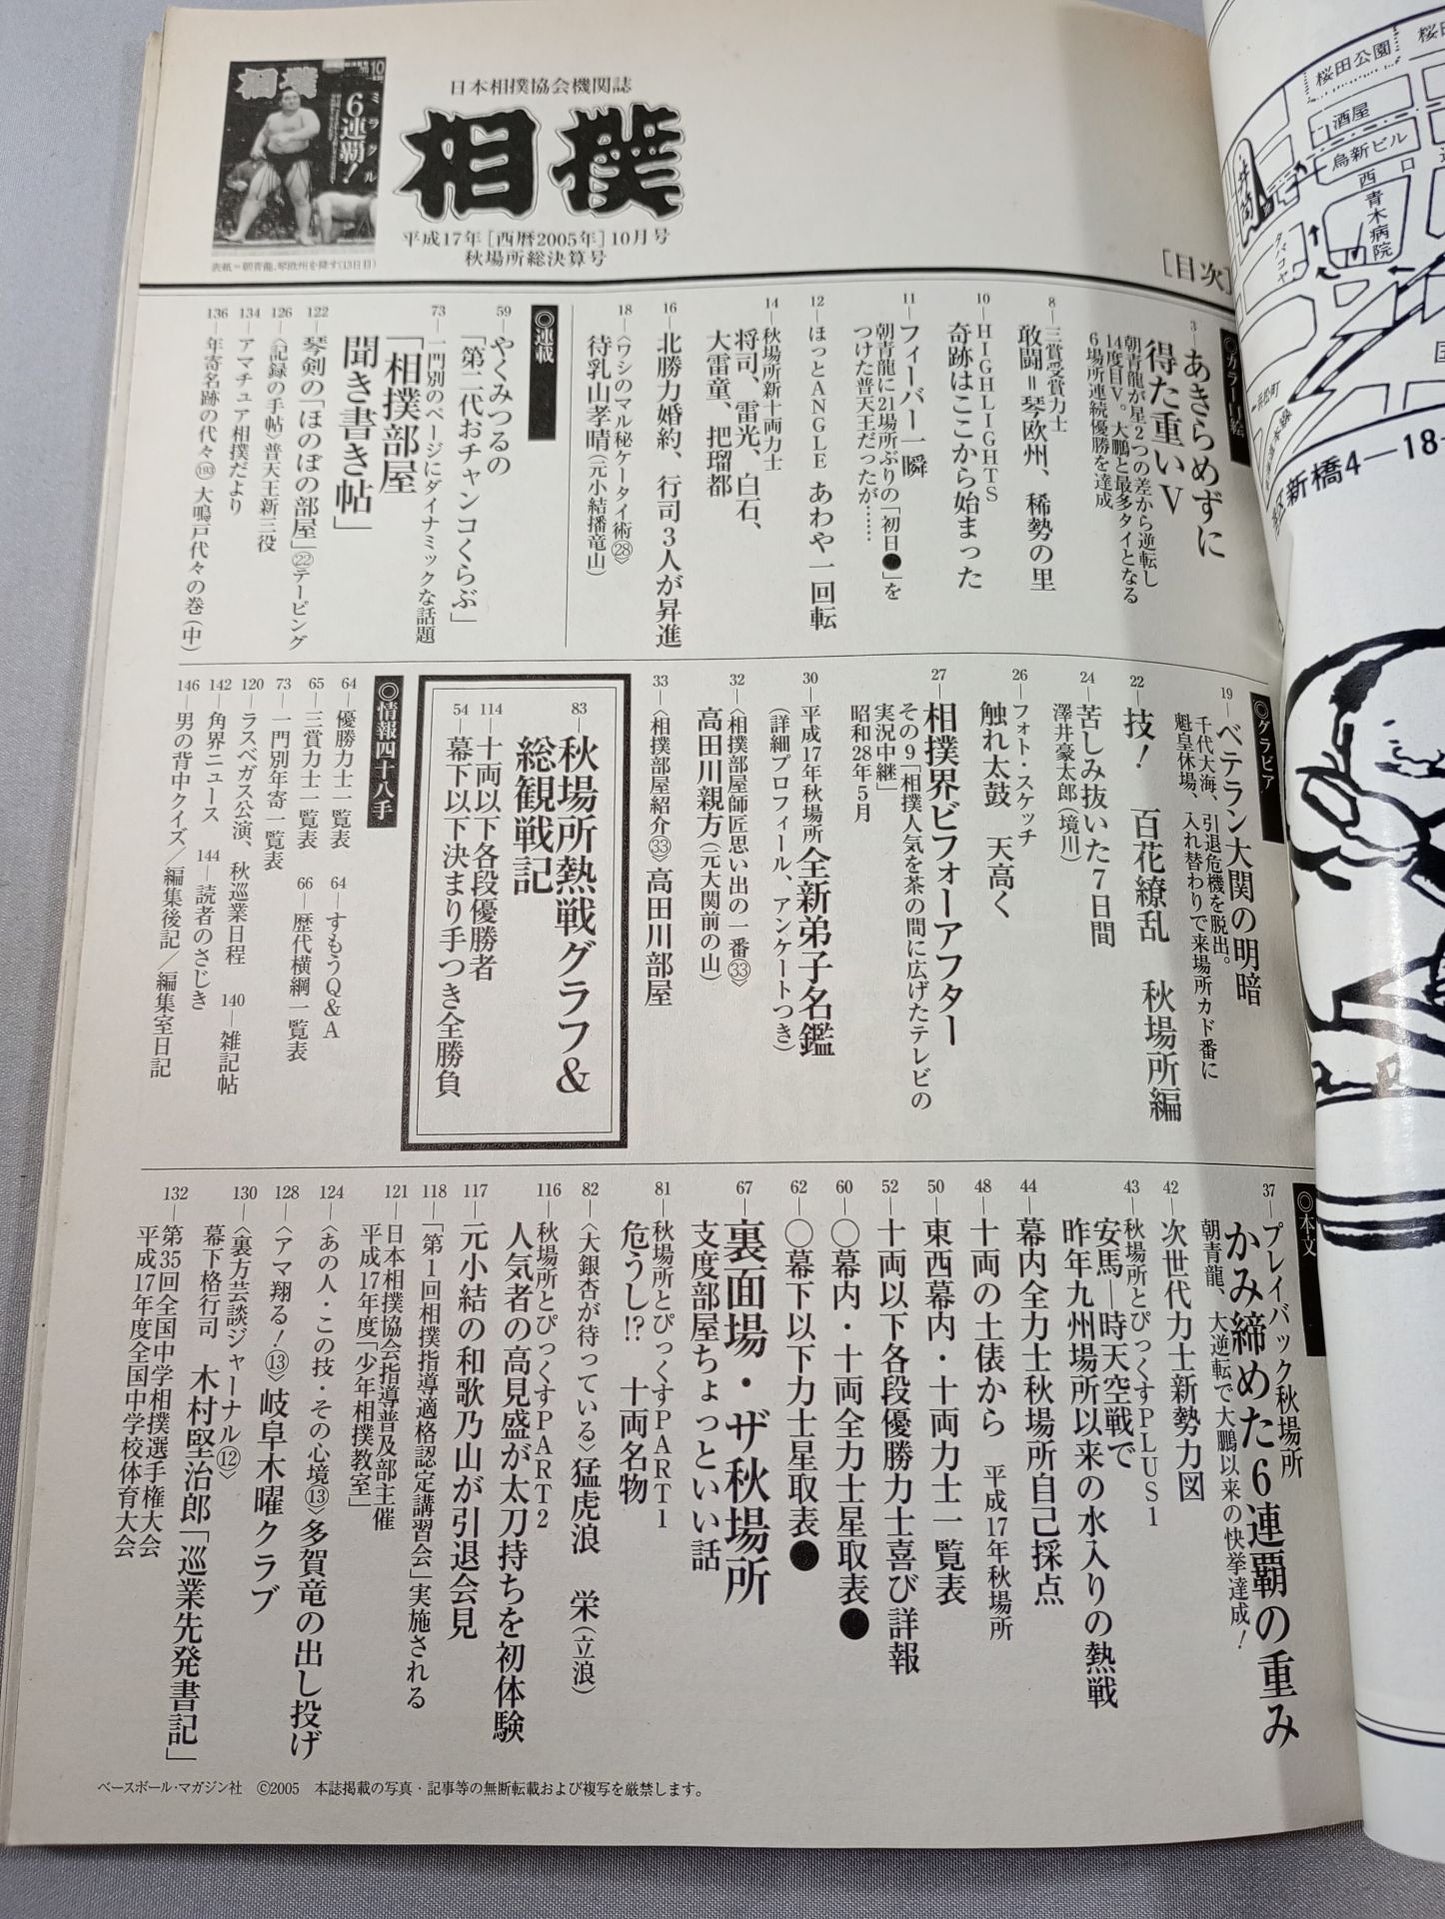 相撲
10
ミラクル
6連覇!
日本相撲協会機関誌
相撲
平成17年[西暦2005年]10月号
秋場所総決算号
表紙=朝青龍、琴欧州を降す(13日目)
[目次]
◎カラー口絵
3―あきらめずに
得た重いV
朝青龍が星2つの差から逆転し
14度目V。大鵬と最多タイとなる
6場所連続優勝を達成
8―三賞受賞力士
敢闘=琴欧州、稀勢の里
10―HIGHLIGHTS
奇跡はここから始まった
11―フィーバー一瞬
朝青龍に21場所ぶりの「初日●」を
つけた普天王だったが……
12―ほっとANGLE あわや一回転
14―秋場所新十両力士
将司、雷光、白石、
大雷童、把瑠都
16―北勝力婚約、行司3人が昇進
18―〈ワシのマル秘ケータイ術㉘〉
待乳山孝晴(元小結播竜山)
◎連載
59―やくみつるの
「第二代おチャンコくらぶ」
73―一門別のページにダイナミックな話題
「相撲部屋
聞き書き帖」
122―琴剣の「ほのぼの部屋」㉒テーピング
126―〈記録の手帖〉普天王新三役
134―アマチュア相撲だより
136―年寄名跡の代々(193)大鳴戸代々の巻(中)
◎グラビア
19―ベテラン大関の明暗
千代大海、引退危機を脱出。
魁皇休場、入れ替わりで来場所カド番に
22―技! 百花繚乱 秋場所編
24―苦しみ抜いた7日間
澤井豪太郎(境川)
26―フォト・スケッチ
触れ太鼓 天高く
27―相撲界ビフォーアフター
その9「相撲人気を茶の間に広げたテレビの
実況中継」
昭和28年5月
30―平成17年秋場所全新弟子名鑑
(詳細プロフィール、アンケートつき)
32―〈相撲部屋師匠思い出の一番㉝〉
高田川親方(元大関前の山)
33―〈相撲部屋紹介㉝〉高田川部屋
83―秋場所熱戦グラフ&
総観戦記
114―十両以下各段優勝者
54―幕下以下決まり手つき全勝負
◎情報四十八手
64―優勝力士一覧表 64―すもうQ&A
65―三賞力士一覧表 66―歴代横綱一覧表
73―一門別年寄一覧表
120―ラスベガス公演、秋巡業日程 140―雑記帖
142―角界ニュース 144―読者のさじき
146―男の背中クイズ/編集後記/編集室日記
◎本文
37―プレイバック秋場所
かみ締めた6連覇の重み
朝青龍、大逆転で大鵬以来の快挙達成!
42―次世代力士新勢力図
43―秋場所とぴっくすPLUS1
安馬―時天空戦で
昨年九州場所以来の水入りの熱戦
44―幕内全力士秋場所自己採点
48―十両の土俵から 平成17年秋場所
50―東西幕内・十両力士一覧表
52―十両以下各段優勝力士喜び詳報
60―○幕内・十両全力士星取表●
62―○幕下以下力士星取表●
67―裏面場・ザ秋場所
支度部屋ちょっといい話
81―秋場所とぴっくすPART1
危うし!? 十両名物
82―〈大銀杏が待っている〉猛虎浪 栄(立浪)
116―秋場所とぴっくすPART2
人気者の高見盛が太刀持ちを初体験
117―元小結の和歌乃山が引退会見
118―「第1回相撲指導適格認定講習会」実施される
121―日本相撲協会指導普及部主催
平成17年度「少年相撲教室」
124―〈あの人・この技・その心境⑬〉多賀竜の出し投げ
128―〈アマ翔る!⑬〉岐阜木曜クラブ
130―〈裏方芸談ジャーナル⑫〉
幕下格行司 木村堅治郎「巡業先発書記」
132―第35回全国中学相撲選手権大会
平成17年度全国中学校体育大会
ベースボール・マガジン社 ©2005 本誌掲載の写真・記事等の無断転載および複写を厳禁します。
桜田公園
酒屋
鳥新ビル
西口
青木病院
タマコヤ
井筒
浜松町
区新橋4―18-